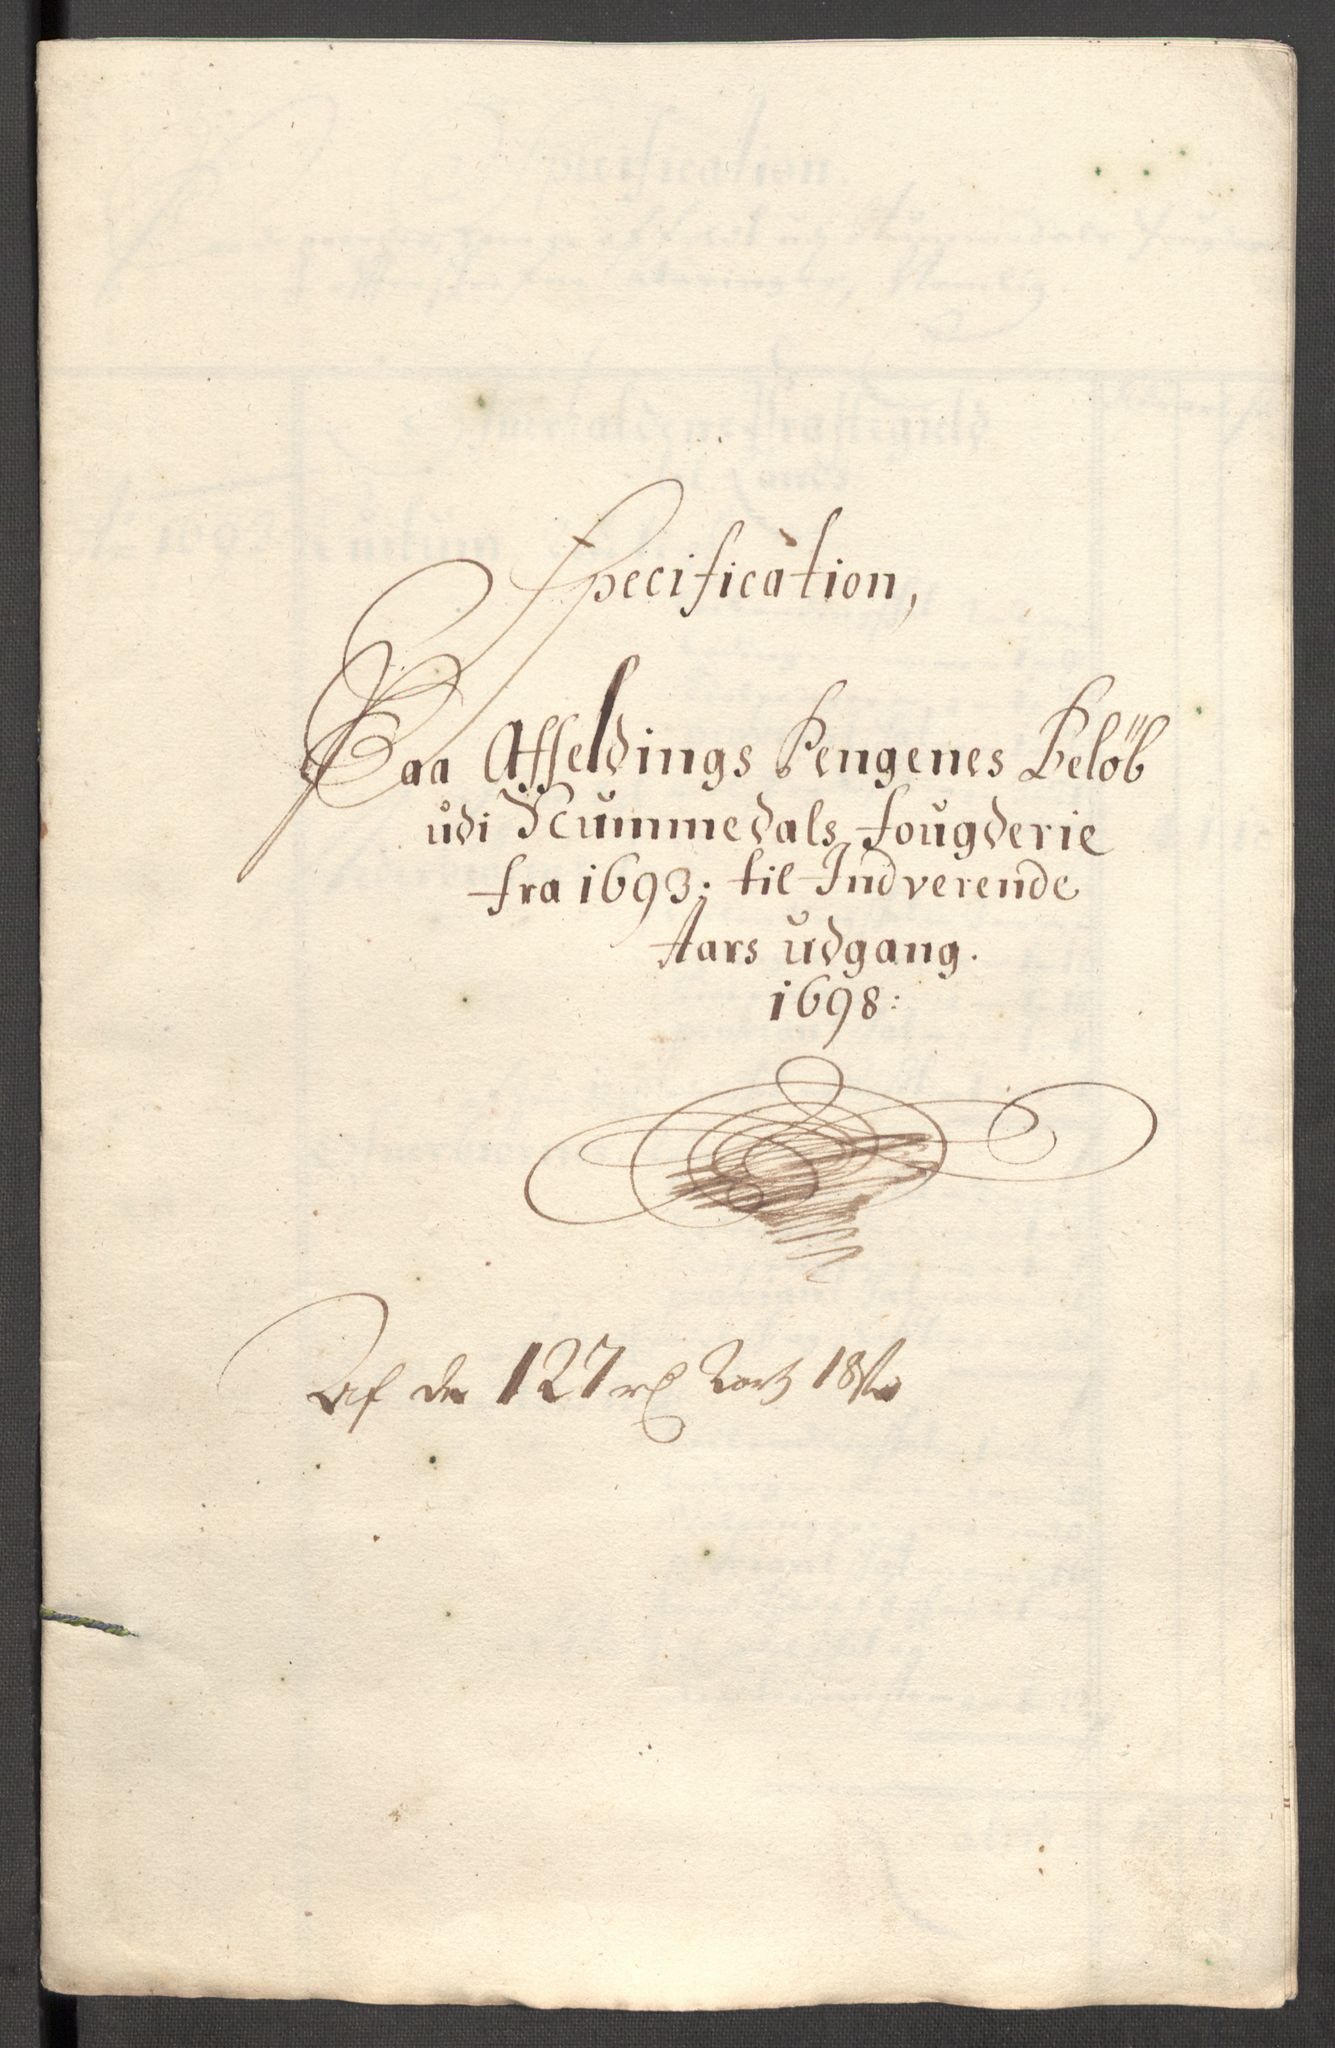 Specification,
Paa Affeldings Pengenes Beløb
udi Nummedals fougderie
fra 1693: til Indverende
Aars udgang.
1698:
Af de 127 rd 2 ort 18